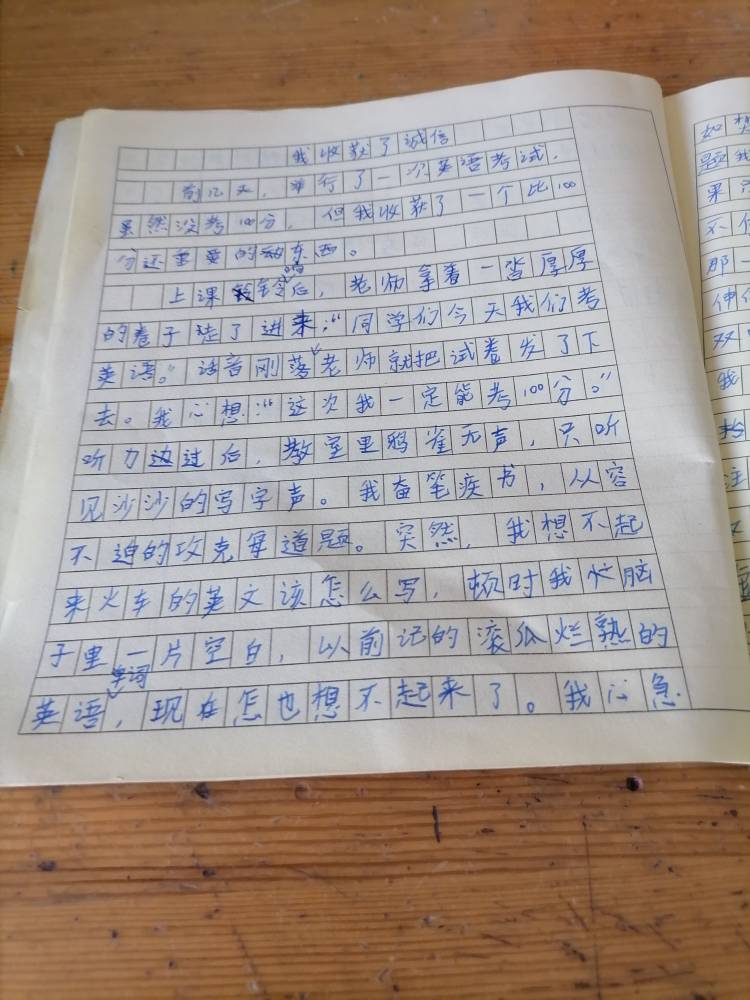 我收获了诚信
前几天，举行了一次英语考试，
虽然没考100分，但我收获了一个比100
分还重要的东西。
上课铃响后，老师拿着一沓厚厚
的卷子走了进来：“同学们今天我们考
英语。”话音刚落，老师就把试卷发了下
去。我心想：“这次我一定能考100分。”
听力边过后，教室里鸦雀无声，只听
见沙沙的写字声。我奋笔疾书，从容
不迫的攻克每道题。突然，我想不起
来火车的英文该怎么写，顿时我忙脑
子里一片空白，以前记的滚瓜烂熟的
英语单词，现在怎也想不起来了。我心急
如
题我
果
不
那一
伸
双
我
抬
注
又